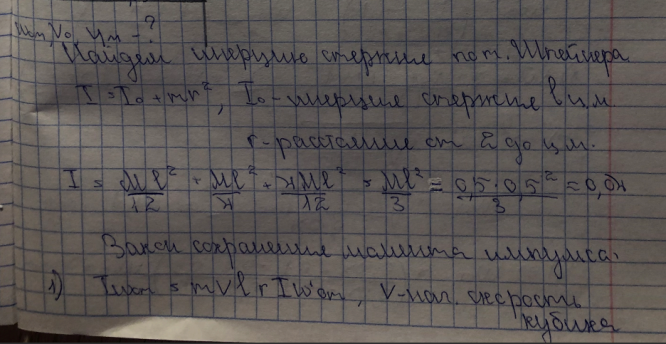 V₀, цм - ?
Найдем инерцию стержня по т. Штейнера
I = I₀ + mr², I₀ - инерция стержня в ц.м.
r - расстояние от 2 до ц.м.
I = Ml²/12 + Ml²/4 + 4Ml²/12 = Ml²/3 = 0,5·0,5²/3 = 0,04
Закон сохранения момента импульса:
1) Iω = mVl + Iω, V - нач. скорость
кубика